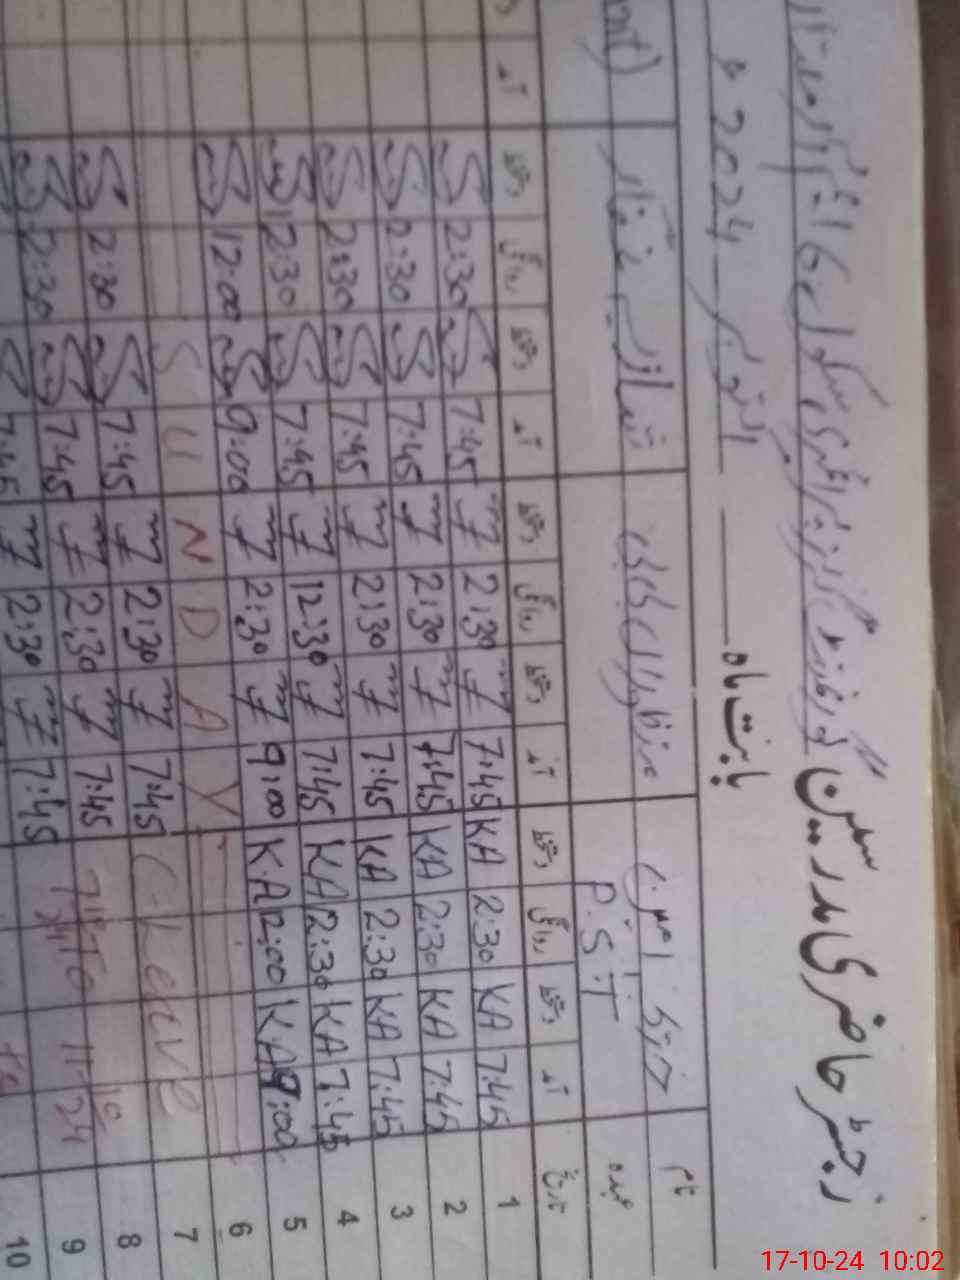 رجسٹر حاضری مدرسین گورنمنٹ گرلز پرائمری سکول
بابت ماہ اکتوبر 2024ء
نام
عہدہ P.S.T
تاریخ آمد دستخط روانگی دستخط آمد دستخط روانگی دستخط آمد دستخط روانگی دستخط آمد
1 7:45 KA 2:30 KA 7:45 2:30 7:45 2:30
2 7:45 KA 2:30 KA 7:45 2:30 7:45 2:30
3 7:45 KA 2:30 KA 7:45 2:30 7:45 2:30
4 7:45 KA 2:30 KA 7:45 12:30 7:45 2:30
5 9:00 KA 2:00 K.A 9:00 2:30 9:00 12:00
6 SUNDAY
7 C-Leave 7:45 2:30 7:45 2:30
8 7-10-24 To 11-10-24 7:45 2:30 7:45 2:30
9 7:45 2:30 7:45
10
17-10-24 10:02